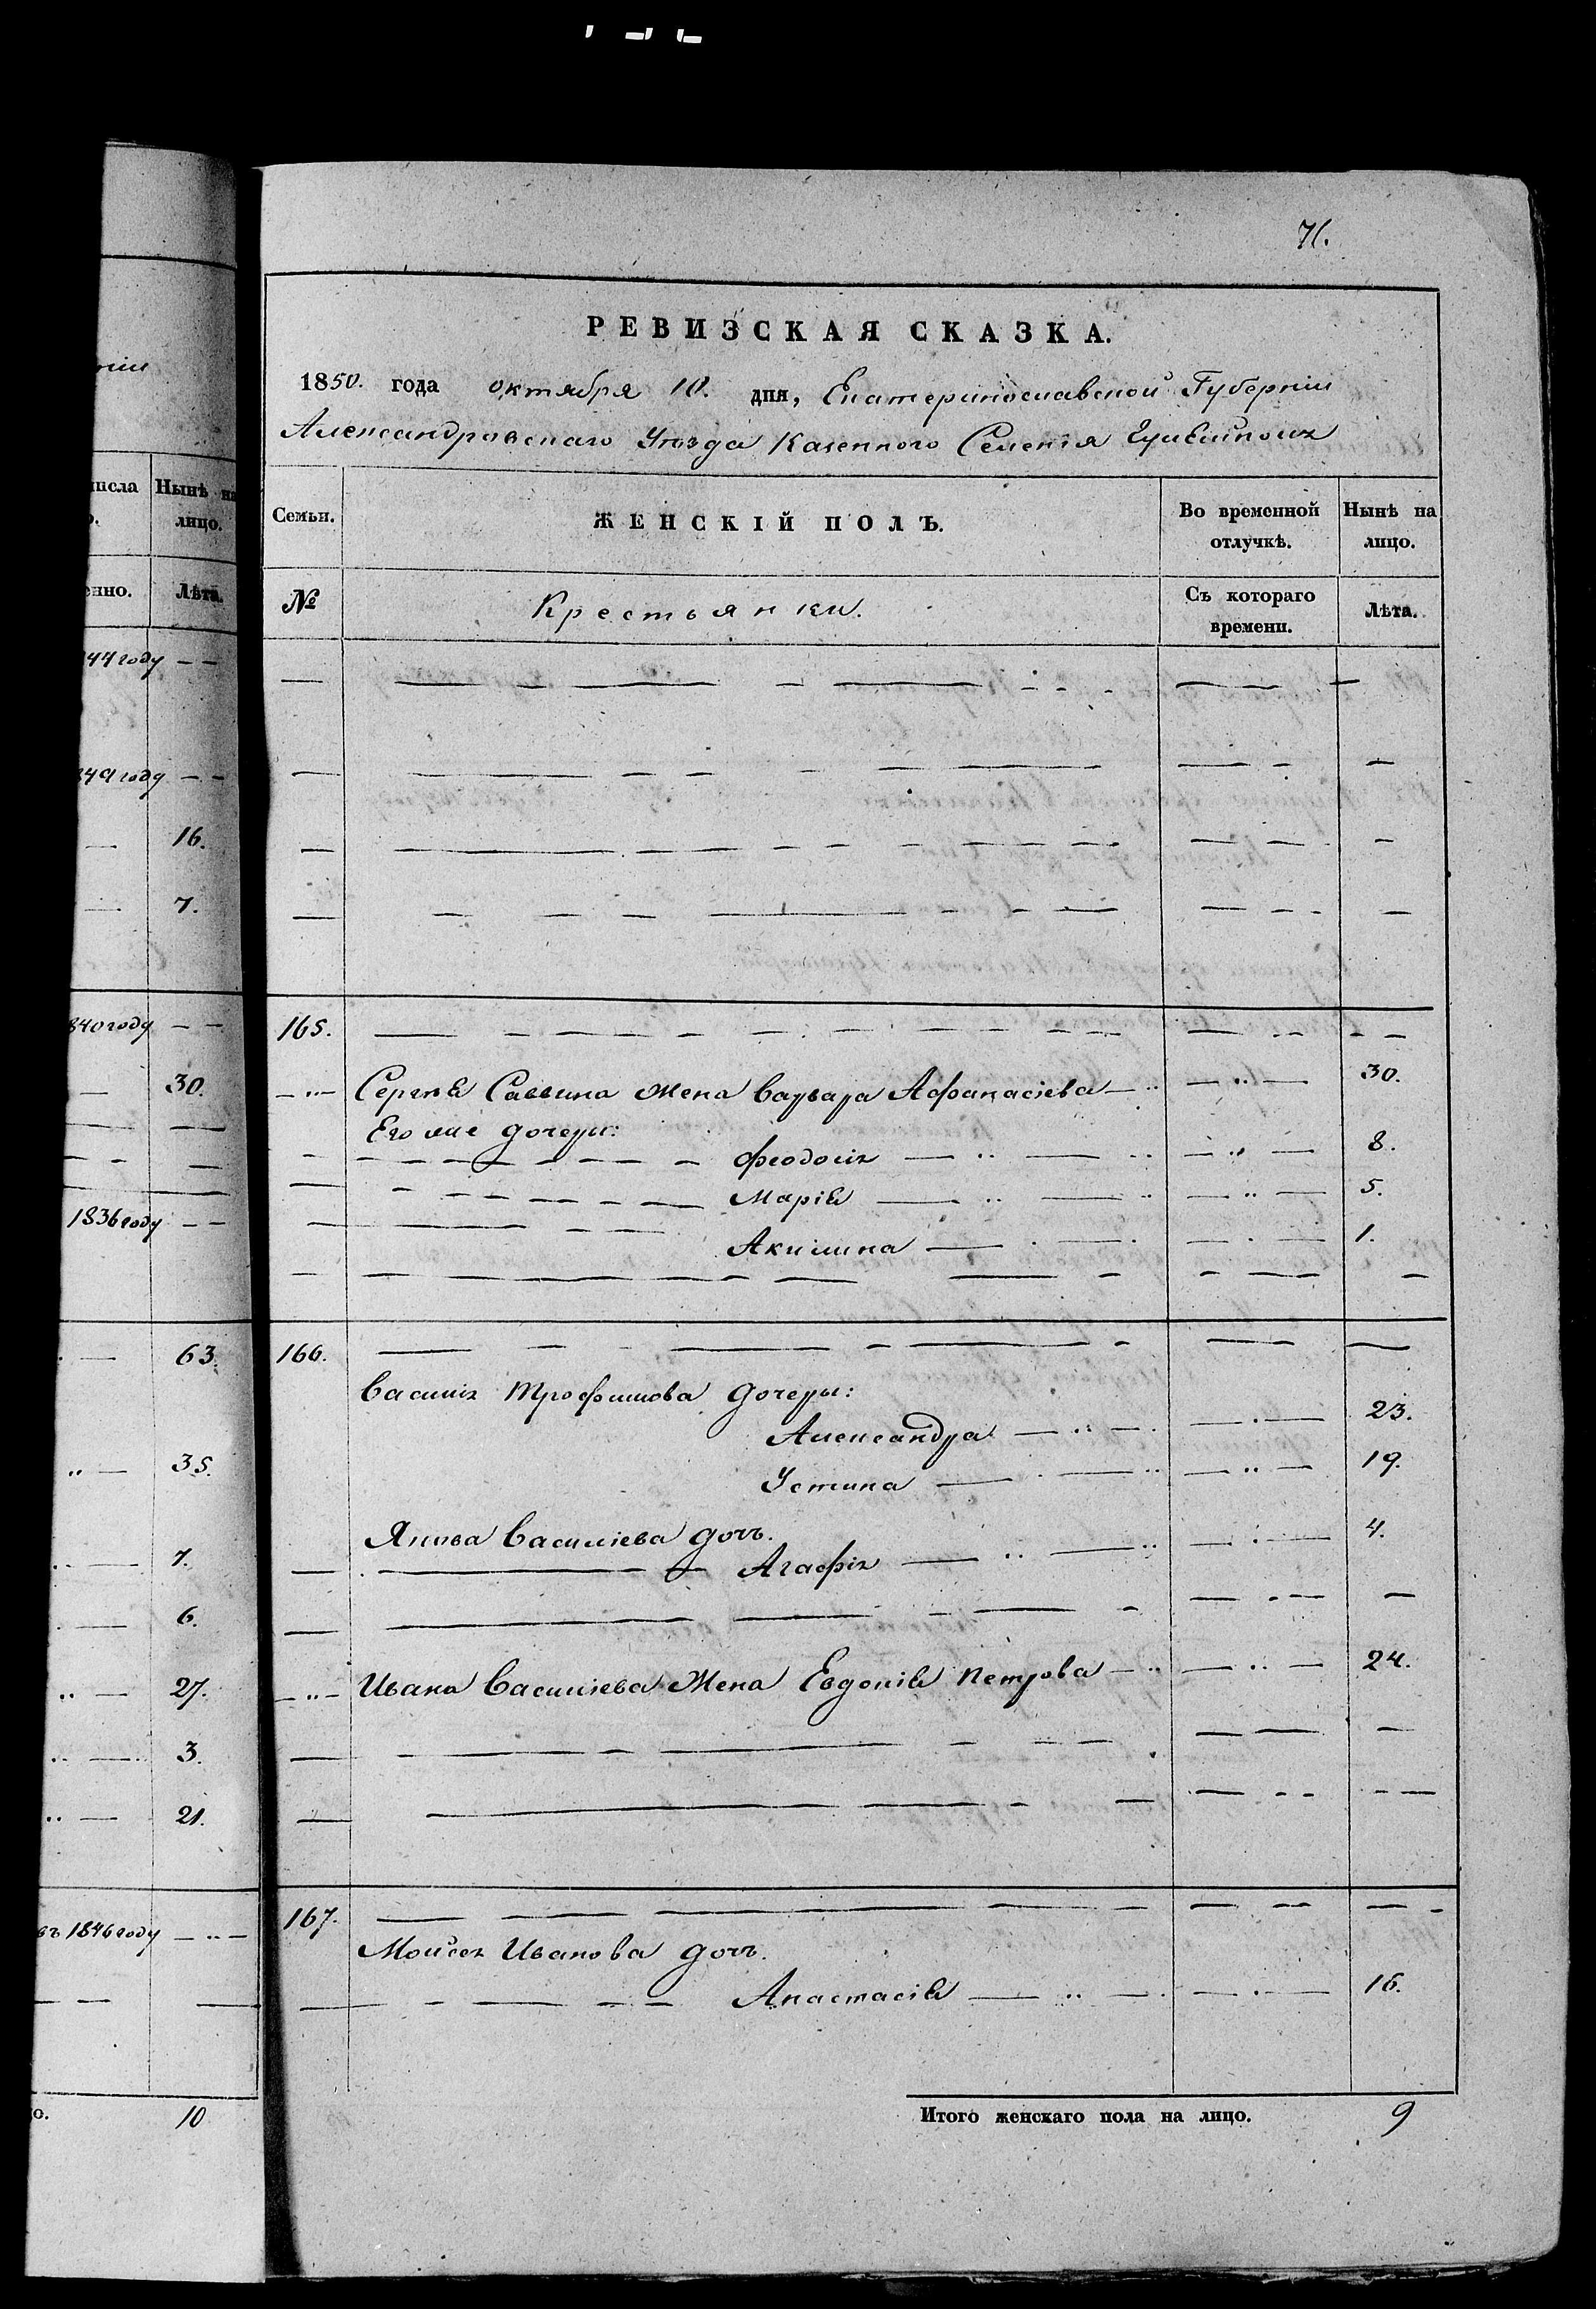 71.
РЕВИЗСКАЯ СКАЗКА.
1850. года октября 10. дня, Екатеринославской Губерніи
Александровскаго Уѣзда Казенного Селенія Гуляйполя
Семьи.
ЖЕНСКІЙ ПОЛЪ.
Во временной отлучкѣ.
Нынѣ на лицо.
№
Крестьянки.
Съ котораго времени.
Лѣта.
165.
Сергѣя Саввина жена Варвара Афанасіева 30.
Его же дочери:
Феодосія 8.
Марія 5.
Акилина 1.
166.
Василія Трофимова дочери:
Александра 23.
Устина 19.
Якова Василіева дочь.
Агафія 4.
Ивана Василіева жена Евдокія Петрова 24.
167.
Моисея Иванова дочь.
Анастасія 16.
Итого женскаго пола на лицо. 9
Нынѣ на
лицо.
Лѣта.
16.
7.
30.
1836 году
63.
35.
7.
6.
27.
3.
21.
въ 1846 году
10